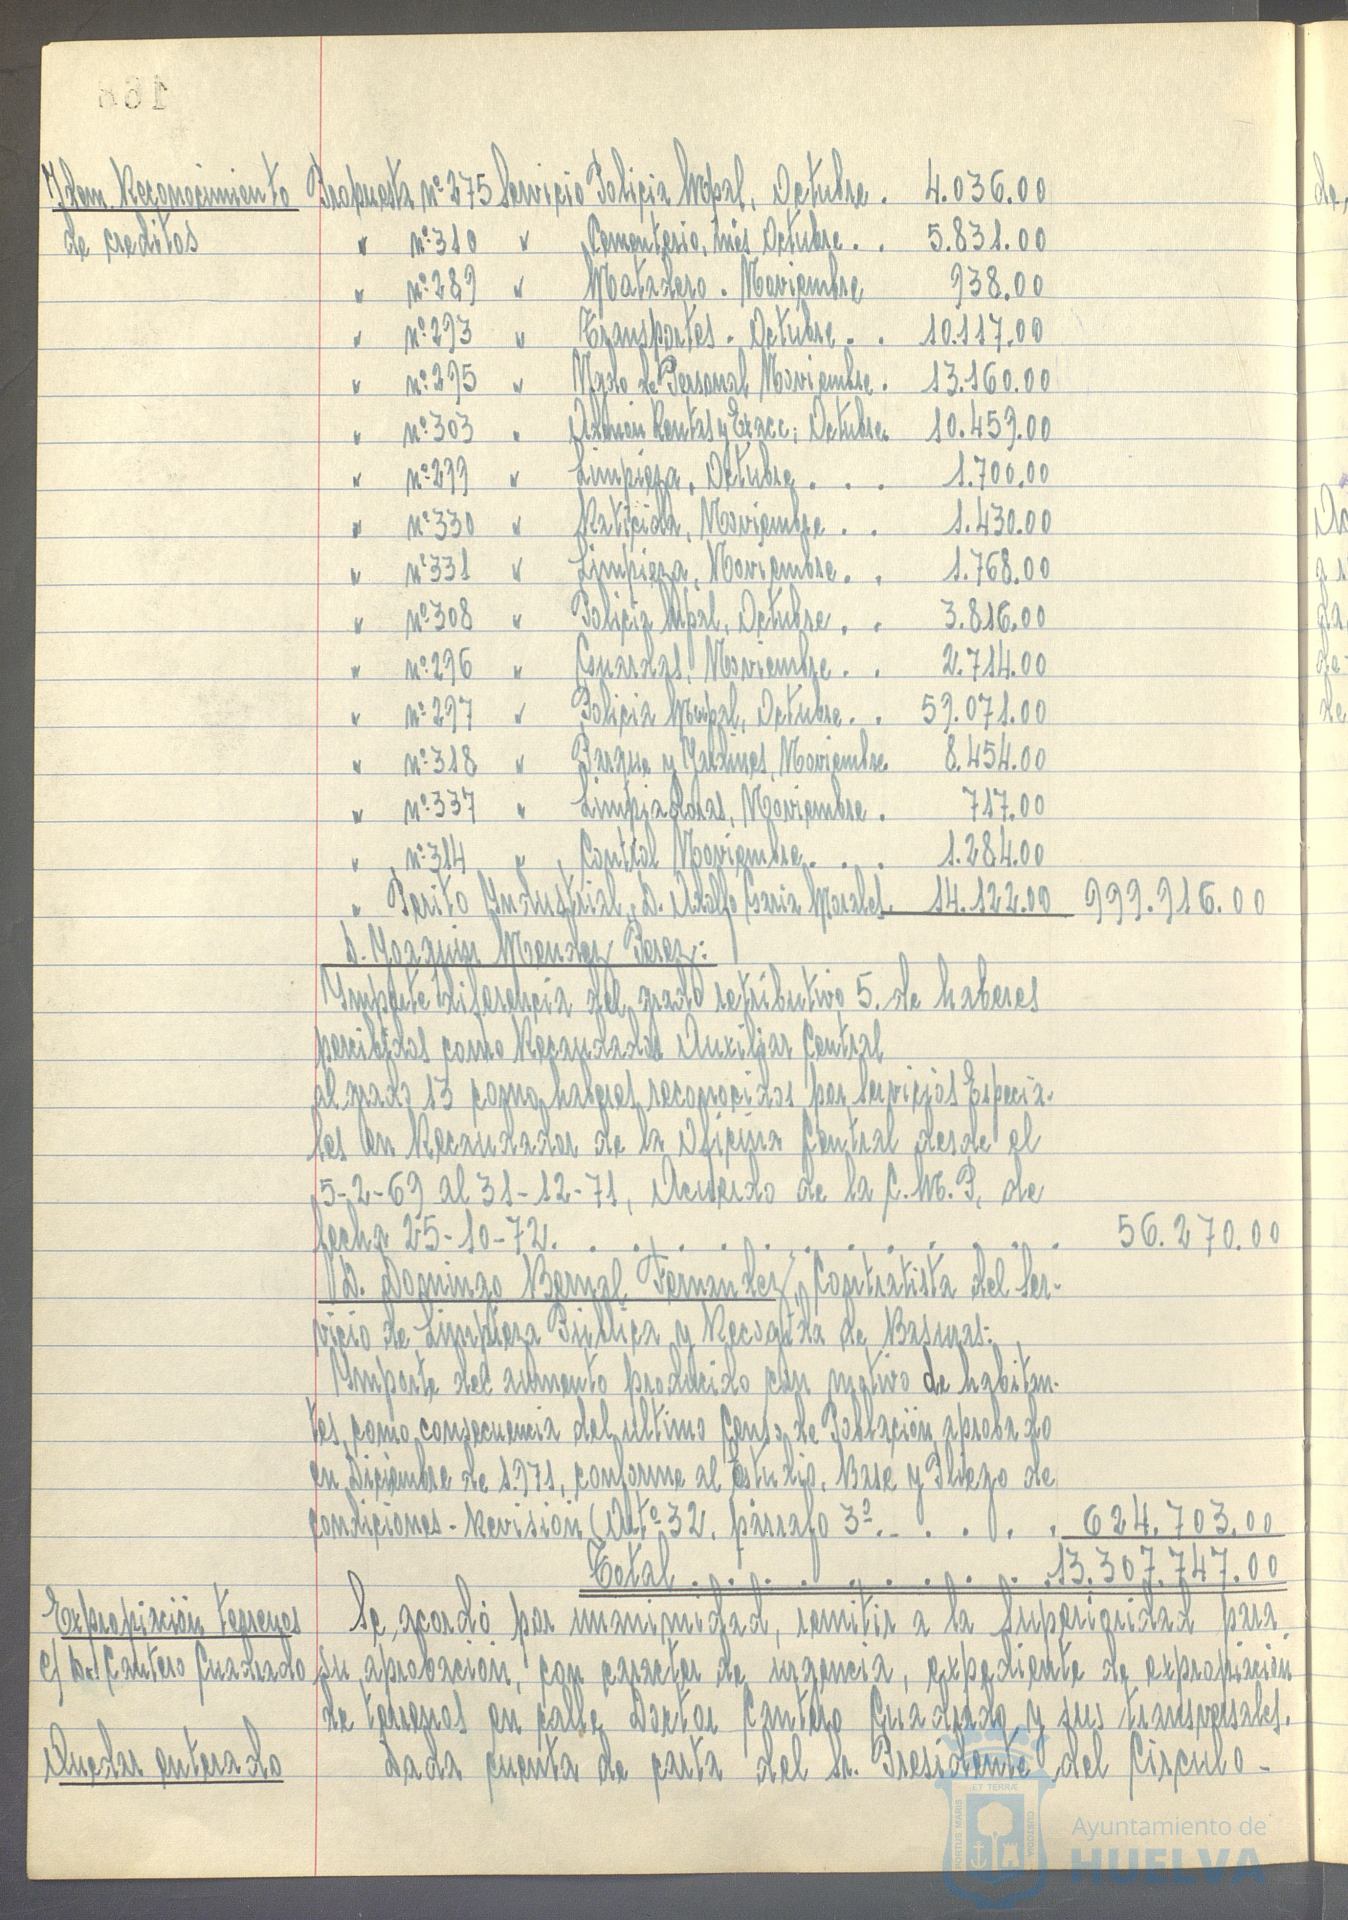 168
Idem. Reconocimiento Propuesta nº 275 Servicio Policia Mpal, Octubre . 4.036.00
de creditos " nº 310 " Cementerio, mes Octubre . . 5.831.00
" nº 289 " Matadero . Noviembre 938.00
" nº 293 " Transportes . Octubre . . 10.117.00
" nº 295 " Ngdo de Personal Noviembre . 13.160.00
" nº 303 " Admon Rentas y Exacc; Octubre. 10.459.00
" nº 299 " Limpieza, Octubre . . . 1.700.00
" nº 330 " Raticida, Noviembre . . 1.430.00
" nº 331 " Limpieza, Noviembre . . 1.768.00
" nº 308 " Policia Mpal, Octubre . . 3.816.00
" nº 296 " Guardas, Noviembre . . 2.714.00
" nº 297 " Policia Mpal, Octubre . . 59.071.00
" nº 318 " Parque y Jardines, Noviembre. 8.454.00
" nº 337 " Limpiadoras, Noviembre . 717.00
" nº 314 " Control Noviembre . . . 1.284.00
" Perito Industrial, D. Adolfo Morales 14.122.00 999.916.00
D. Joaquin Mendez Perez:
Importe diferencia del grado retributivo 5. de haberes
percibidos como Recaudador Auxiliar Central
al grado 13 como haberes reconocidos por Servicios Especia-
les en Recaudador de la Oficina Central desde el
5-2-69 al 31-12-71, Acuerdo de la C.M.P. de
fecha 25-10-72. . . . . . . . . . . . 56.270.00
D. Domingo Bernal Fernandez, Contratista del Ser-
vicio de Limpieza Pública y Recogida de Basuras:
Importe del aumento producido con motivo de habitan-
tes, como consecuencia del ultimo Censo de Población aprobado
en Diciembre de 1.971, conforme al Estudio, Base y Pliego de
condiciones - Revisión (Artº 32, párrafo 3º . . . . . 624.703.00
Total . . . . . . . . . . 13.307.747.00
Expropiación terrenos Se acordó por unanimidad, remitir a la Superioridad para
c/ Dr. Cantero Cuadrado su aprobación, con caracter de urgencia, expediente de expropiación
de terrenos en calle Doctor Cantero Cuadrado y sus transversales.
Quedar enterado Dada cuenta de carta del Sr. Presidente del Circulo -
ET TERRÆ
PORTUS MARIS
CUSTODIA
Ayuntamiento de
HUELVA